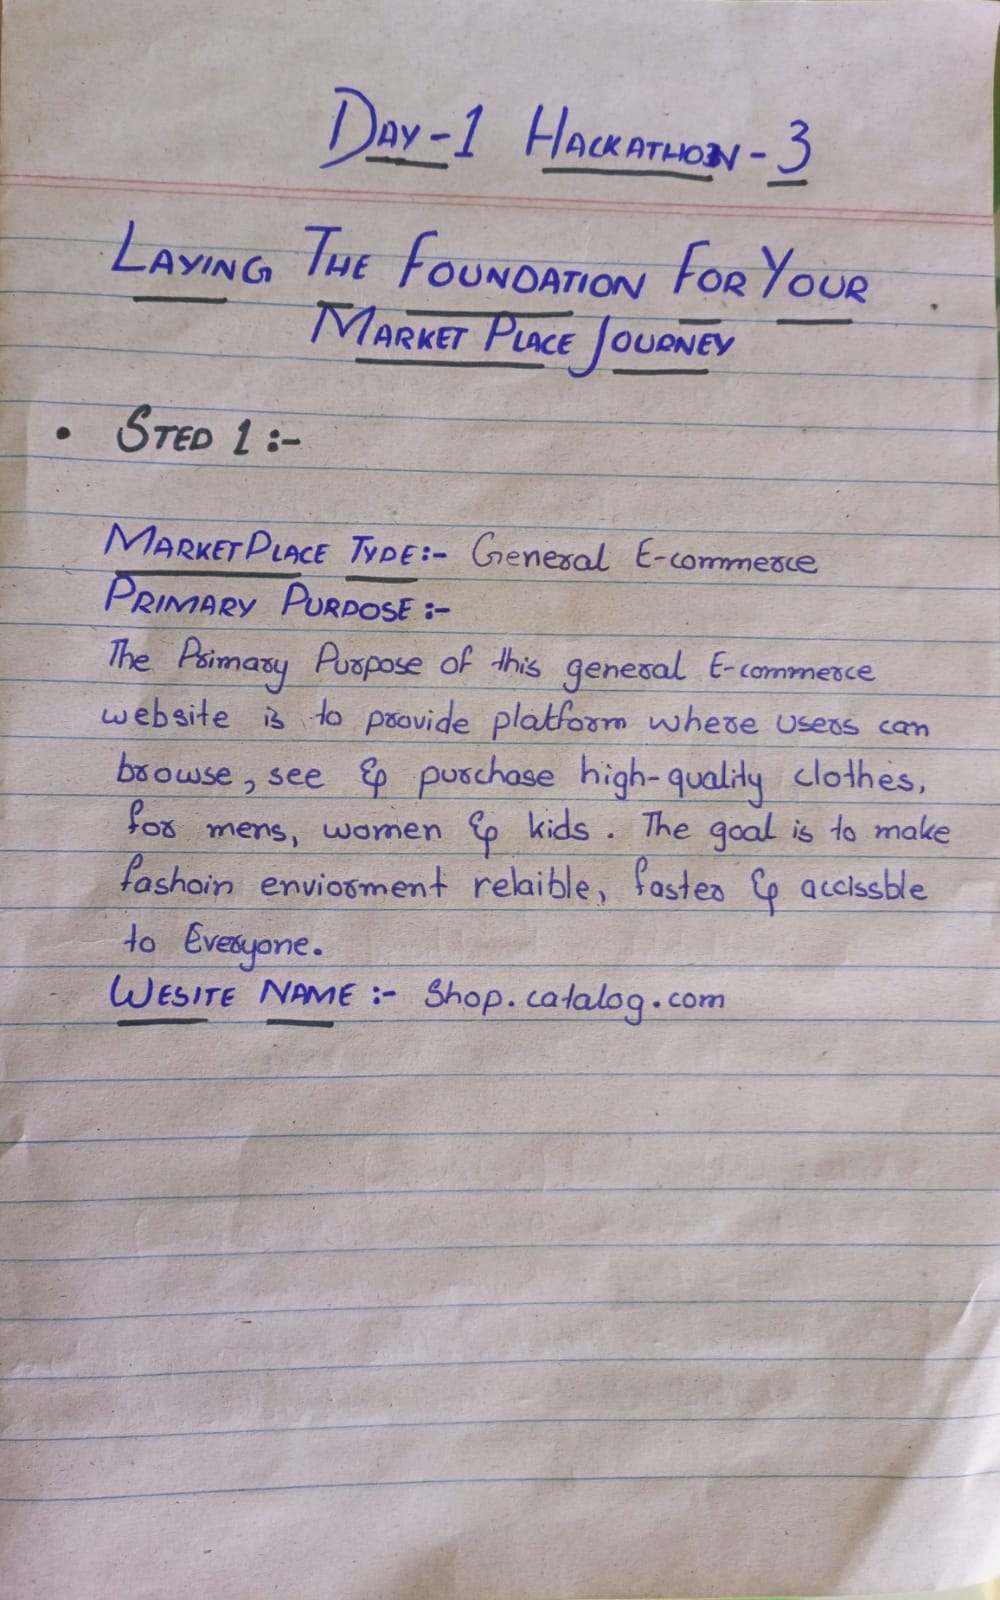 DAY-1 HACKATHON-3
LAYING THE FOUNDATION FOR YOUR
MARKET PLACE JOURNEY
• STED 1 :-
MARKETPLACE TYPE:- General E-commerce
PRIMARY PURPOSE :-
The Primary Purpose of this general E-commerce
website is to provide platform where users can
browse, see & purchase high-quality clothes,
for mens, women & kids. The goal is to make
fashoin enviorment relaible, faster & accissble
to Everyone.
WESITE NAME :- Shop.catalog.com